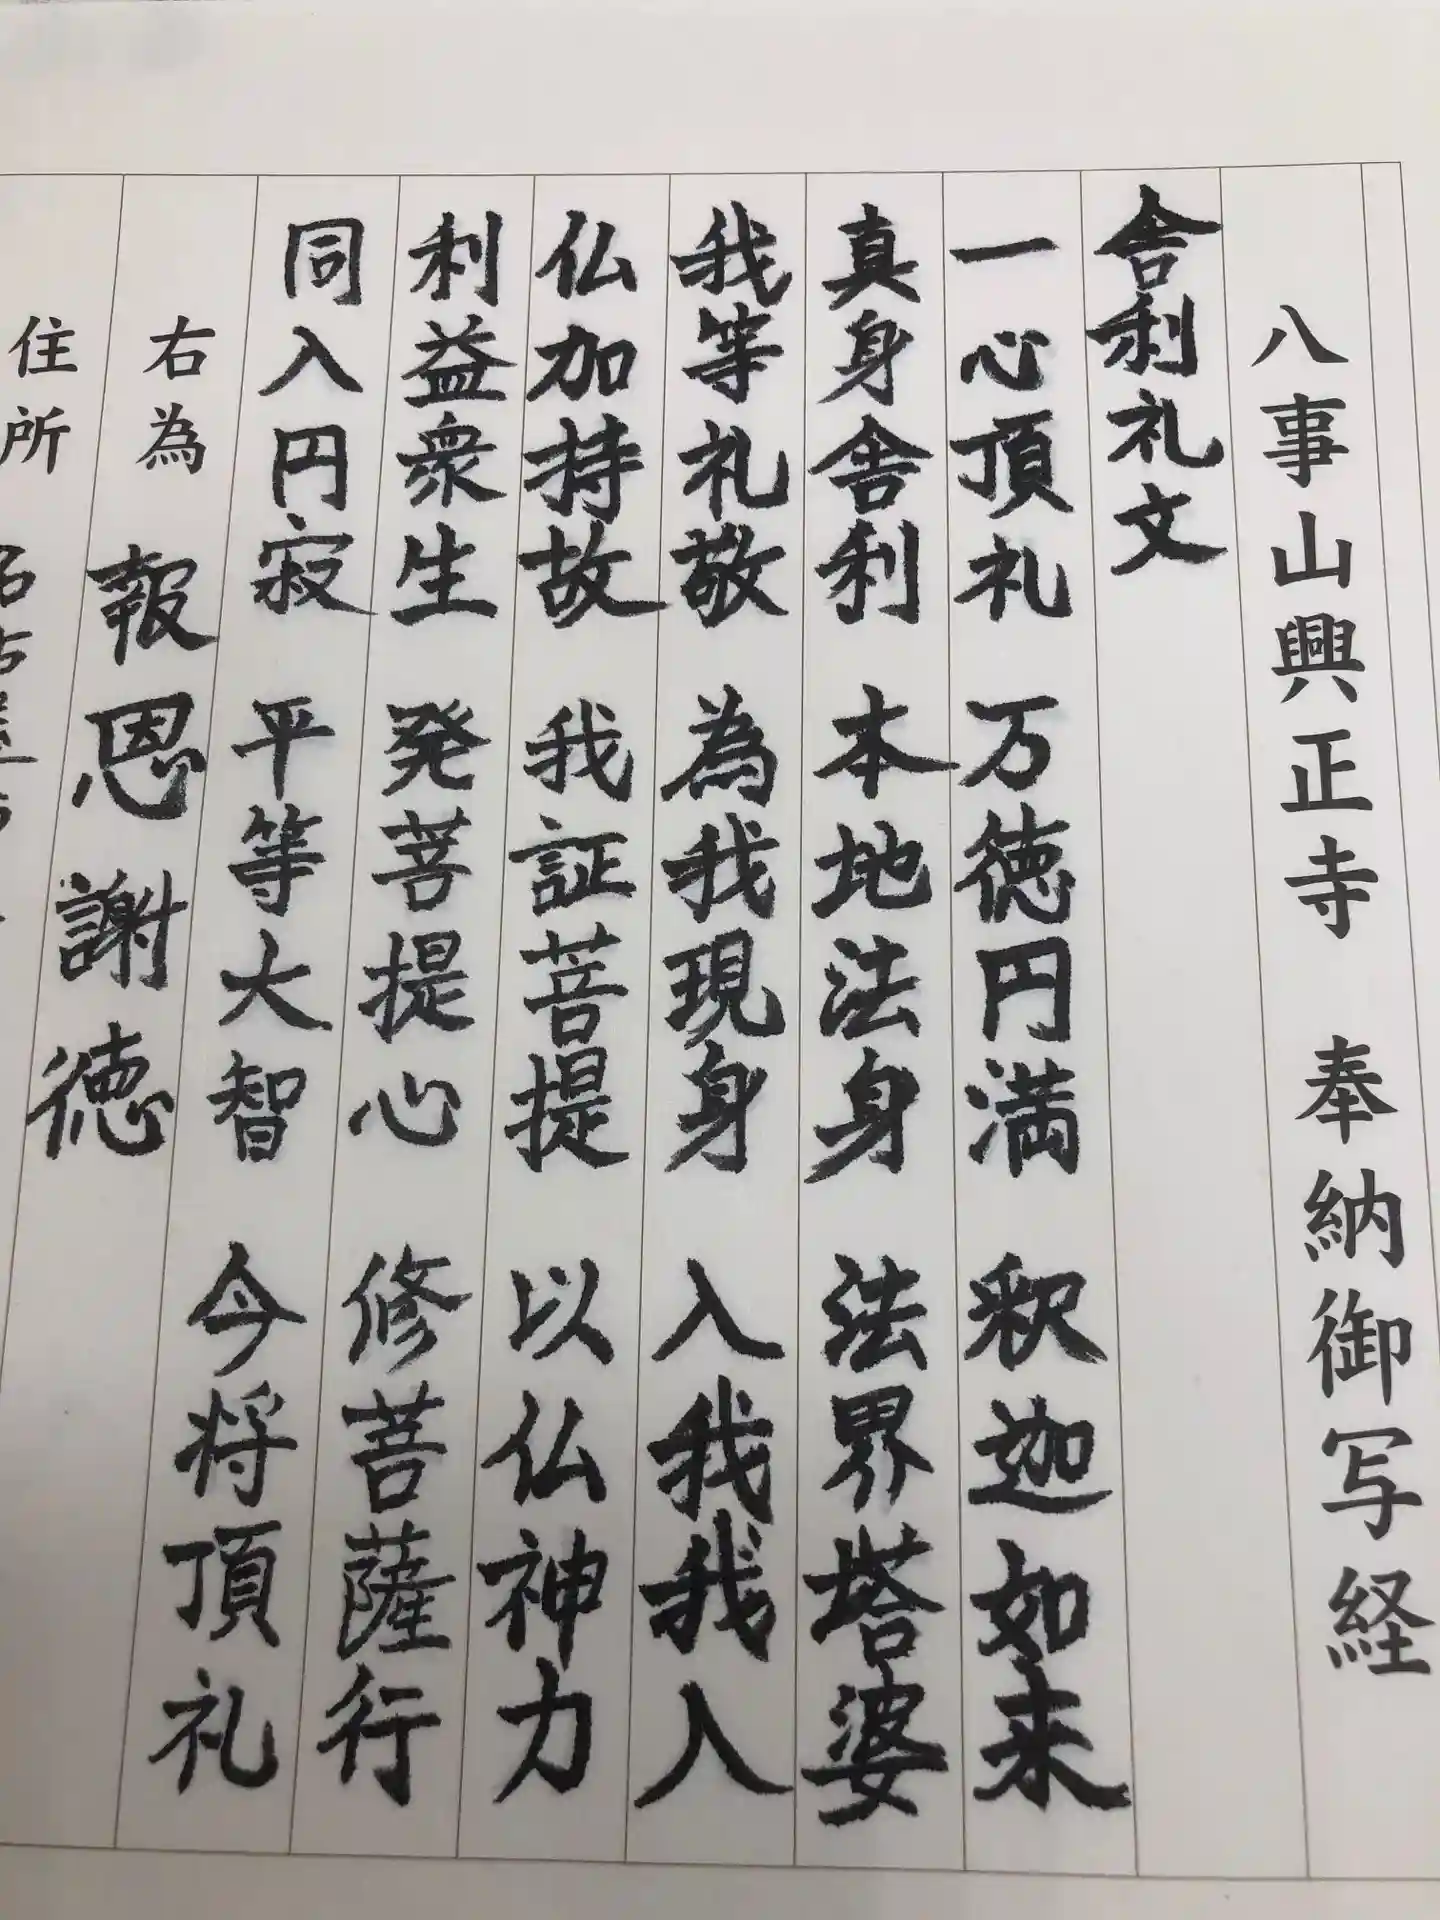 八事山興正寺 奉納御写経
舎利礼文
一心頂礼 万徳円満 釈迦如来
真身舎利 本地法身 法界塔婆
我等礼敬 為我現身 入我我入
仏加持故 我証菩提 以仏神力
利益衆生 発菩提心 修菩薩行
同入円寂 平等大智 今将頂礼
右為 報恩謝徳
住所 名古屋市